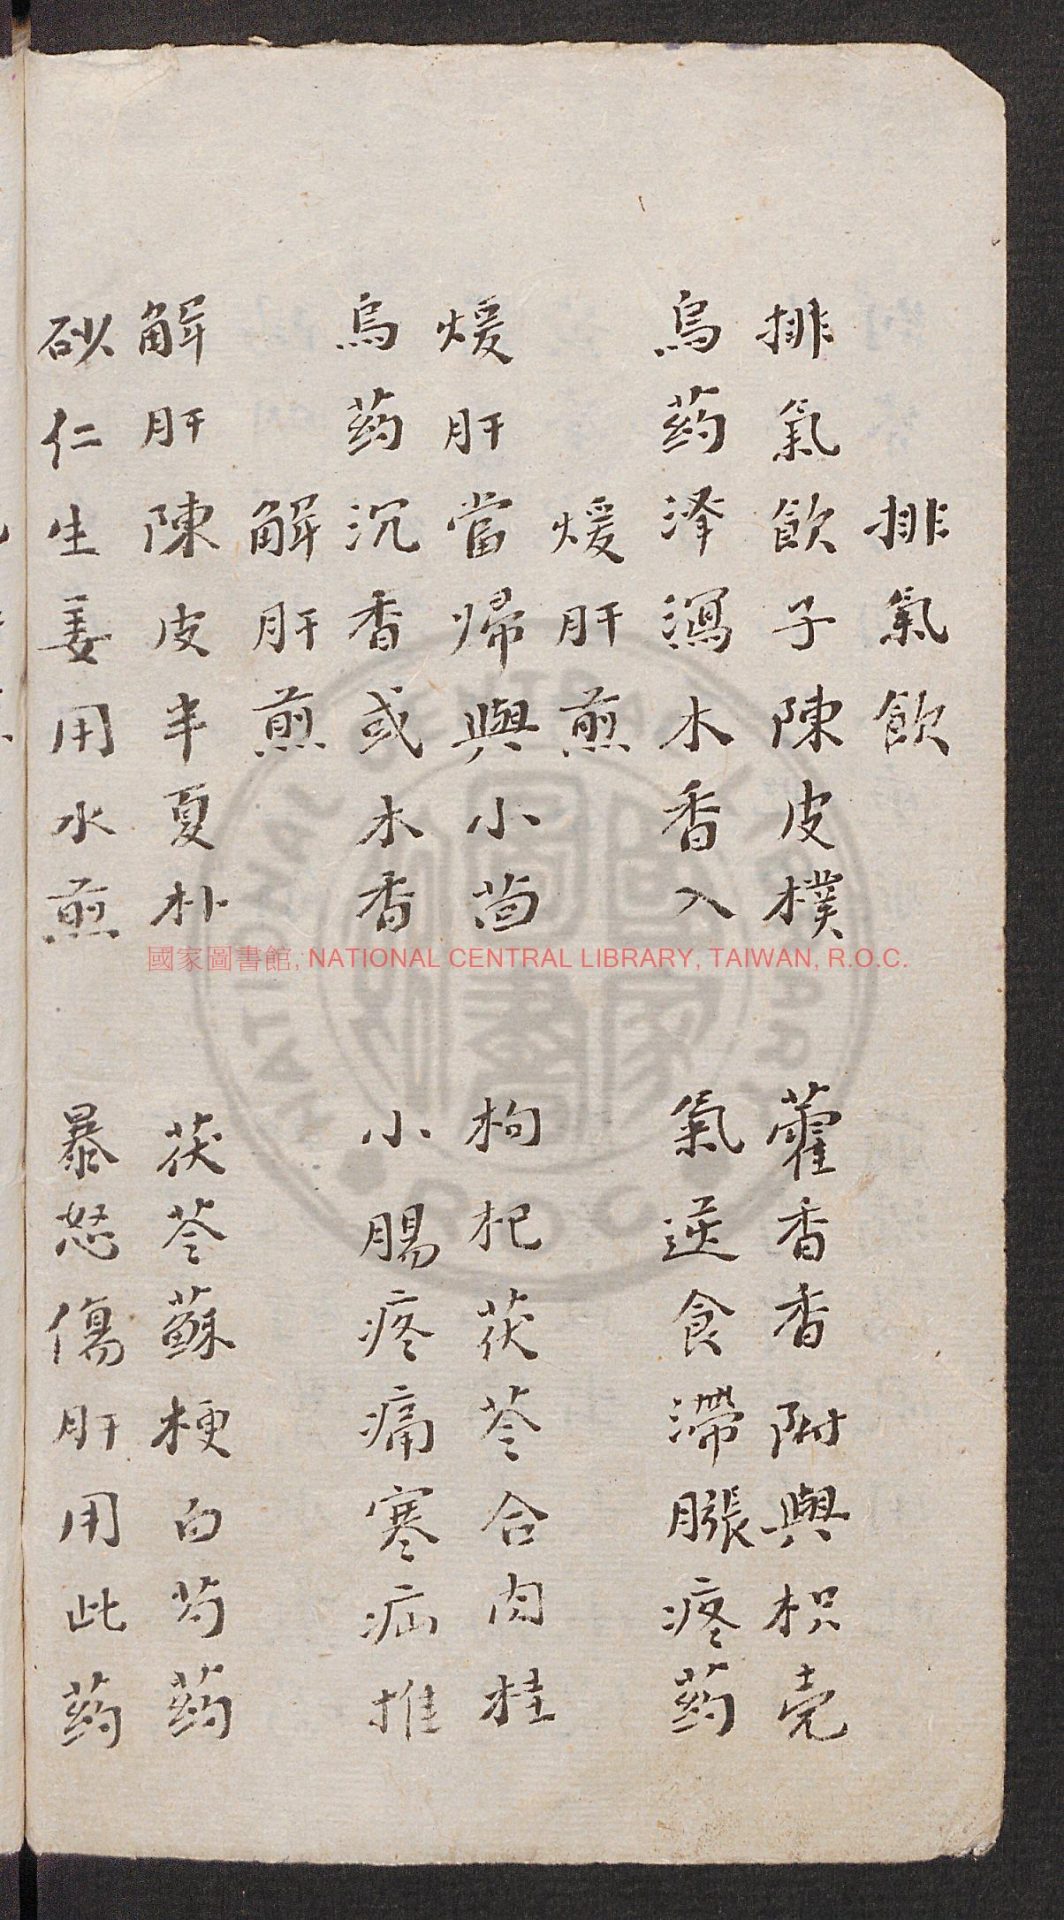 排氣飲
排氣飲子陳皮樸 藿香香附與枳壳
烏药泽瀉木香入 氣逆食滯脹疼药
煖肝煎
煖肝當歸與小茴 枸杞茯苓合肉桂
烏药沉香或木香 小腸疼痛寒疝推
解肝煎
解肝陳皮半夏朴 茯苓蘇梗白芍药
砂仁生姜用水煎 暴怒傷肝用此药
國家圖書館, NATIONAL CENTRAL LIBRARY, TAIWAN, R.O.C.